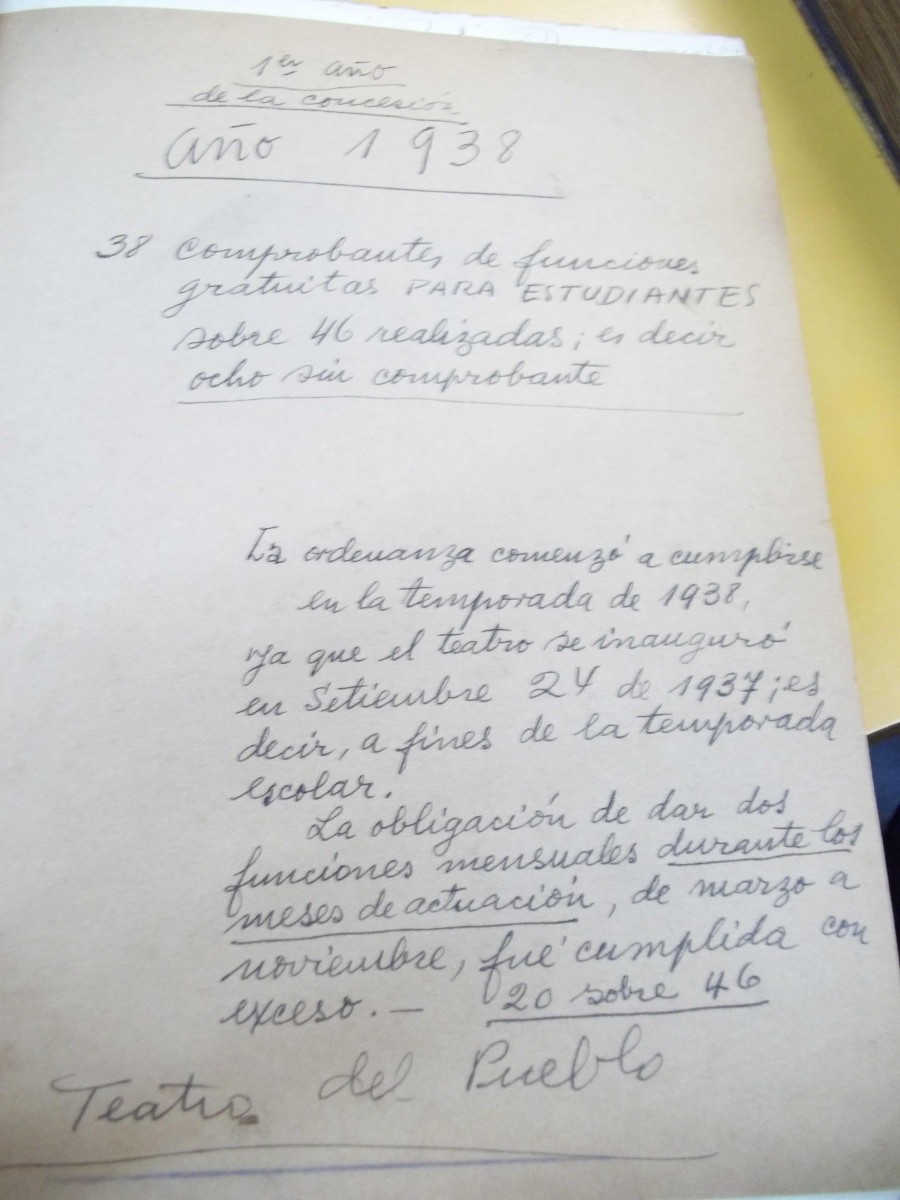 1er año
de la concesión
año 1938
38 comprobantes de funciones
gratuitas PARA ESTUDIANTES
sobre 46 realizadas; es decir
ocho sin comprobante
La ordenanza comenzó a cumplirse
en la temporada de 1938,
ya que el teatro se inauguró
en Setiembre 24 de 1937; es
decir, a fines de la temporada
escolar.
La obligación de dar dos
funciones mensuales durante los
meses de actuación, de marzo a
noviembre, fué cumplida con
exceso. — 20 sobre 46
Teatro del Pueblo